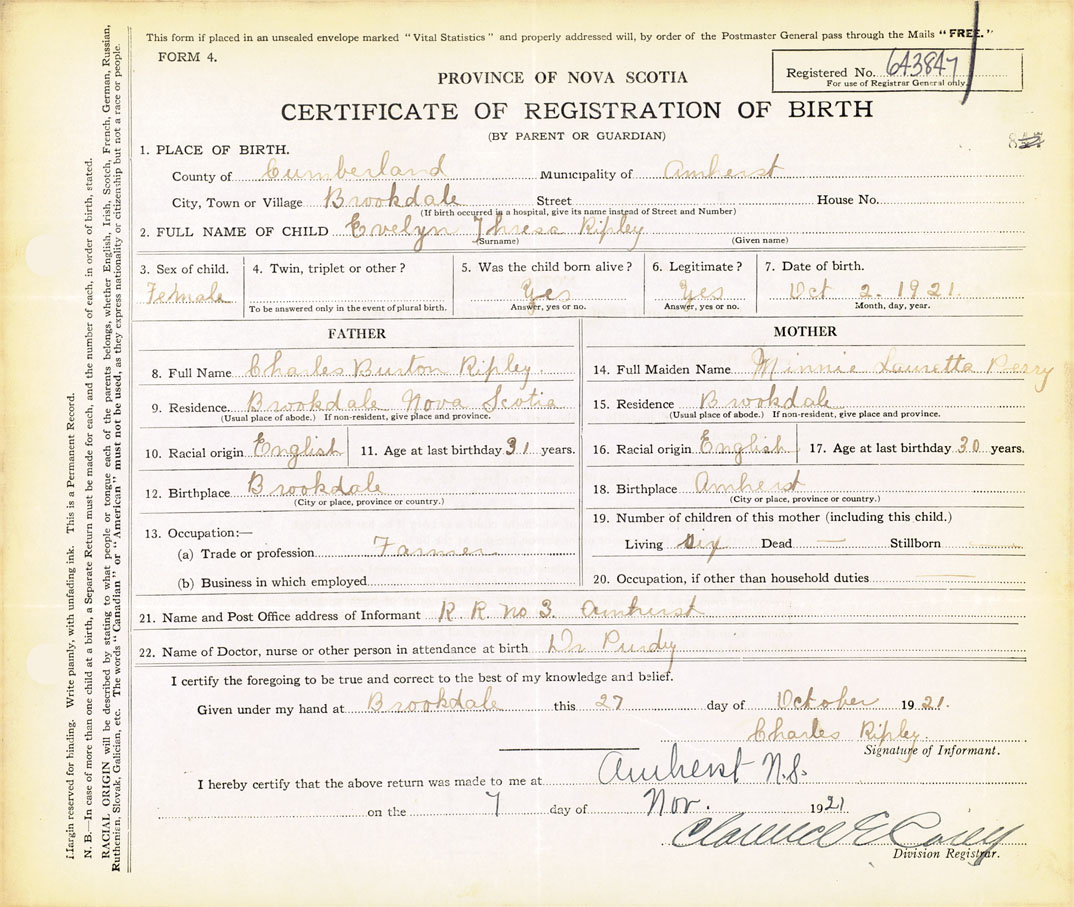 This form if placed in an unsealed envelope marked "Vital Statistics" and properly addressed will, by order of the Postmaster General pass through the Mails "FREE."
FORM 4.
Registered No. 643847
For use of Registrar General only.
PROVINCE OF NOVA SCOTIA
CERTIFICATE OF REGISTRATION OF BIRTH
(BY PARENT OR GUARDIAN)
1. PLACE OF BIRTH.
County of Cumberland Municipality of Amherst
City, Town or Village Brookdale Street House No.
(If birth occurred in a hospital, give its name instead of Street and Number)
2. FULL NAME OF CHILD Evelyn Thresa Ripley
(Surname) (Given name)
3. Sex of child. 4. Twin, triplet or other? 5. Was the child born alive? 6. Legitimate? 7. Date of birth.
Female Yes Yes Oct 2. 1921.
To be answered only in the event of plural birth. Answer, yes or no. Answer, yes or no. Month, day, year.
FATHER
8. Full Name Charles Burton Ripley.
9. Residence. Brookdale Nova Scotia
(Usual place of abode.) If non-resident, give place and province.
10. Racial origin English 11. Age at last birthday 31 years.
12. Birthplace Brookdale
(City or place, province or country.)
13. Occupation:—
(a) Trade or profession Farmer
(b) Business in which employed
MOTHER
14. Full Maiden Name Minnie Lauretta Perry
15. Residence Brookdale
(Usual place of abode.) If non-resident, give place and province.
16. Racial origin English 17. Age at last birthday 30 years.
18. Birthplace Amherst
(City or place, province or country.)
19. Number of children of this mother (including this child.)
Living Six Dead — Stillborn —
20. Occupation, if other than household duties —
21. Name and Post Office address of Informant R. R. no 3. Amherst
22. Name of Doctor, nurse or other person in attendance at birth Dr Purdy
I certify the foregoing to be true and correct to the best of my knowledge and belief.
Given under my hand at Brookdale this 27 day of October 1921.
Charles Ripley.
Signature of Informant.
I hereby certify that the above return was made to me at Amherst N.S.
on the 7 day of Nov. 1921
Clarence E Casey
Division Registrar.
Margin reserved for binding. Write plainly, with unfading ink. This is a Permanent Record.
N. B.—In case of more than one child at a birth, a Separate Return must be made for each, and the number of each, in order of birth, stated.
RACIAL ORIGIN will be described by stating to what people or tongue each of the parents belongs, whether English, Irish, Scotch, French, German, Russian,
Ruthenian, Slovak, Galician, etc. The words "Canadian" or "American" must not be used, as they express nationality or citizenship but not a race or people.